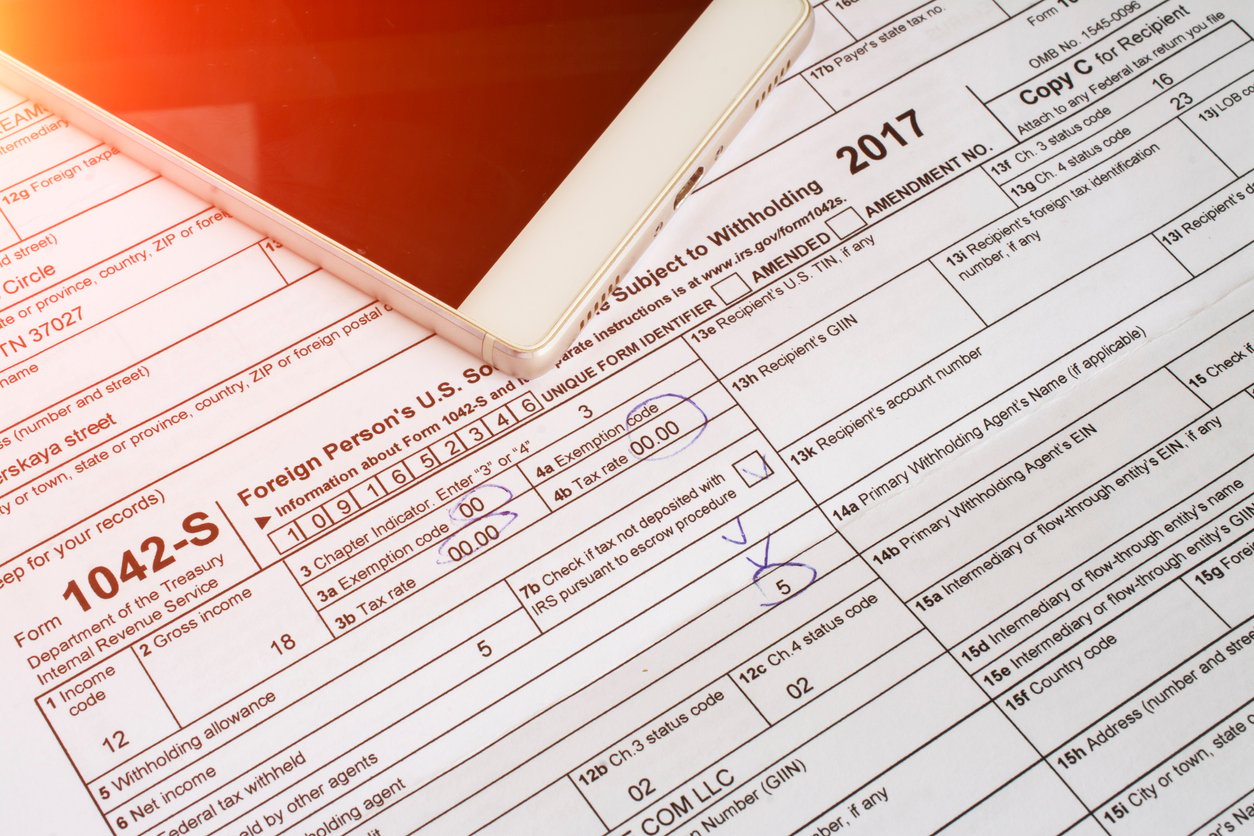 17b Payer's state tax no.
Form
OMB No. 1545-0096
Copy C for Recipient
Attach to any Federal tax return you file
2017
13f Ch. 3 status code 16
13g Ch. 4 status code 23
13j LOB
12g Foreign
and street)
Circle
or province, country, ZIP or
TN 37027
name
(number and street)
street
or town, state or province, country, ZIP or foreign postal
for your records)
Form 1042-S
Department of the Treasury
Internal Revenue Service
Foreign Person's U.S.
Subject to Withholding
Information about Form 1042-S and
instructions is at www.irs.gov/form1042s.
1 0 9 1 6 5 2 3 4 6 UNIQUE FORM IDENTIFIER
AMENDED
AMENDMENT NO.
1 Income code
12
2 Gross income
18
3 Chapter Indicator. Enter "3" or "4" 3
3a Exemption code 00
3b Tax rate 00.00
4a Exemption code
4b Tax rate 00.00
5 Withholding allowance
5
6 Net income
Federal tax withheld
7b Check if tax not deposited with
IRS pursuant to escrow procedure
by other agents
agent
5
12b Ch.3 status code
02
12c Ch.4 status code
02
COM LLC
Number (GIIN)
if any
13e Recipient's U.S. TIN, if any
13h Recipient's GIIN
13i Recipient's foreign tax identification
number, if any
13k Recipient's account number
13l Recipient's
14a Primary Withholding Agent's Name (if applicable)
14b Primary Withholding Agent's EIN
15 Check if
15a Intermediary or flow-through entity's EIN, if any
15d Intermediary or flow-through entity's name
15e Intermediary or flow-through entity's GIIN
15f Country code
15g
15h Address (number and
15i City or town, state